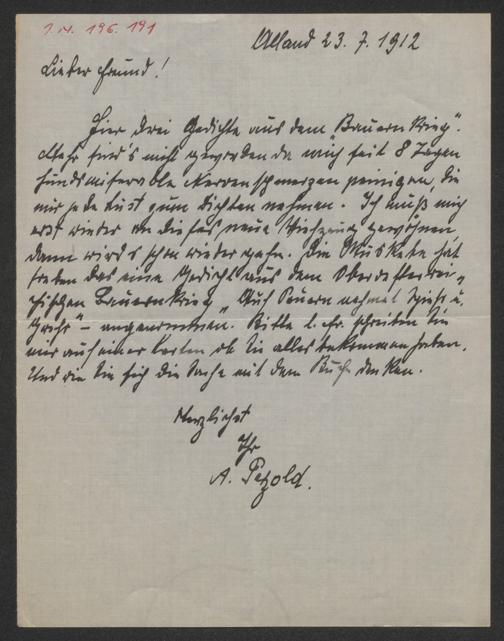 I.N. 196.191
Alland 23. 7. 1912
Lieber Freund!
Hier drei Gedichte aus dem „Bauernkrieg".
Mehr sind's nicht geworden da mich seit 8 Tagen
hundsmiserable Nervenschmerzen peinigen, die
mir jede Lust zum dichten nehmen. Ich muß mich
erst wieder an dieses neue gewöhnen
dann wird's schon wieder gehn. Die Muskete hat
soeben das eine Gedicht aus dem Oberösterrei-
chischen Bauernkrieg „Auf Bauern nehmet Spieß u.
Gwehr" – angenommen. Bitte l. Fr. schreiben Sie
mir auf einer Karten ob Sie alles bekommen haben.
Und wie Sie sich die Sache mit dem Buch denken.
Herzlichst
Ihr
A. Petzold.